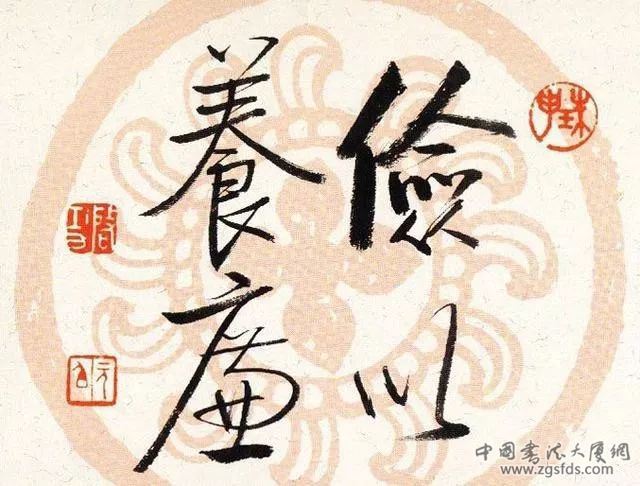 儉以
養廉
中国书法大厦網
www.zgsfds.com